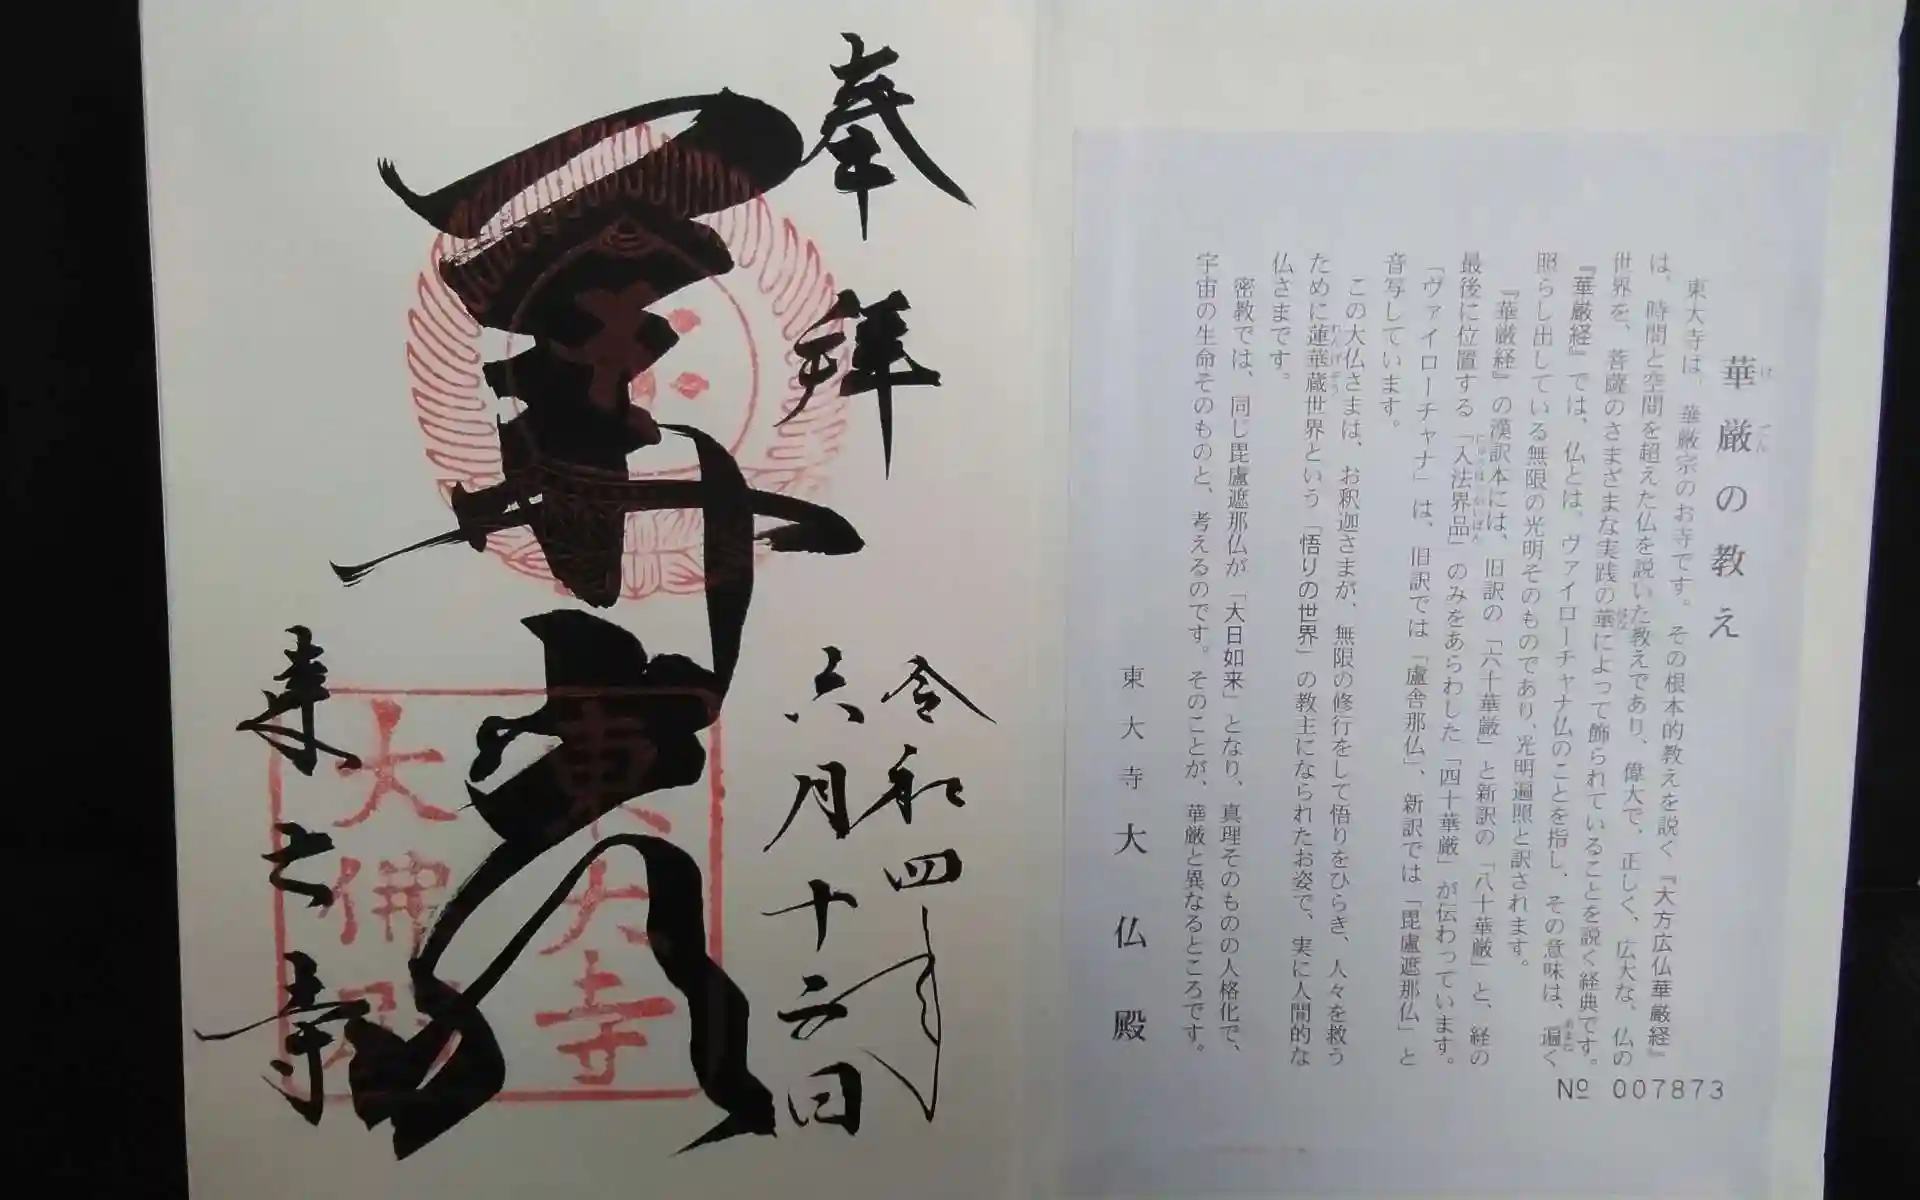 華厳の教え
東大寺は、華厳宗のお寺です。その根本的教えを説く『大方広仏華厳経』
は、時間と空間を超えた仏を説いた教えであり、偉大で、正しく、広大な、仏の
世界を、菩薩のさまざまな実践の華によって飾られていることを説く経典です。
『華厳経』では、仏とは、ヴァイローチャナ仏のことを指し、その意味は、遍く
照らし出している無限の光明そのものであり、光明遍照と訳されます。
『華厳経』の漢訳本には、旧訳の「六十華厳」と新訳の「八十華厳」と、経の
最後に位置する「入法界品」のみをあらわした「四十華厳」が伝わっています。
「ヴァイローチャナ」は、旧訳では「盧舎那仏」、新訳では「毘盧遮那仏」と
音写しています。
この大仏さまは、お釈迦さまが、無限の修行をして悟りをひらき、人々を救う
ために蓮華蔵世界という「悟りの世界」の教主になられたお姿で、実に人間的な
仏さまです。
密教では、同じ毘盧遮那仏が「大日如来」となり、真理そのものの人格化で、
宇宙の生命そのものと、考えるのです。そのことが、華厳と異なるところです。
東大寺大仏殿
№ 007873
奉拝
令和四年
六月十二日
華厳
東大寺
東大寺
大佛殿